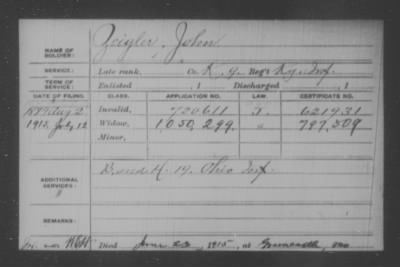 NAME OF SOLDIER: Zeigler, John
SERVICE: Late rank, Co. K, 9 Reg't Ky. Inf.
TERM OF SERVICE: Enlisted , 1 Discharged , 1
DATE OF FILING. CLASS. APPLICATION NO. LAW. CERTIFICATE NO.
Aug 2 Invalid, 720611 621931
1915, July 12 Widow, 1,050,299 " 797,509
Minor,
ADDITIONAL SERVICES: D and K. 19. Ohio Inf
REMARKS:
Died June 23, 1915, at